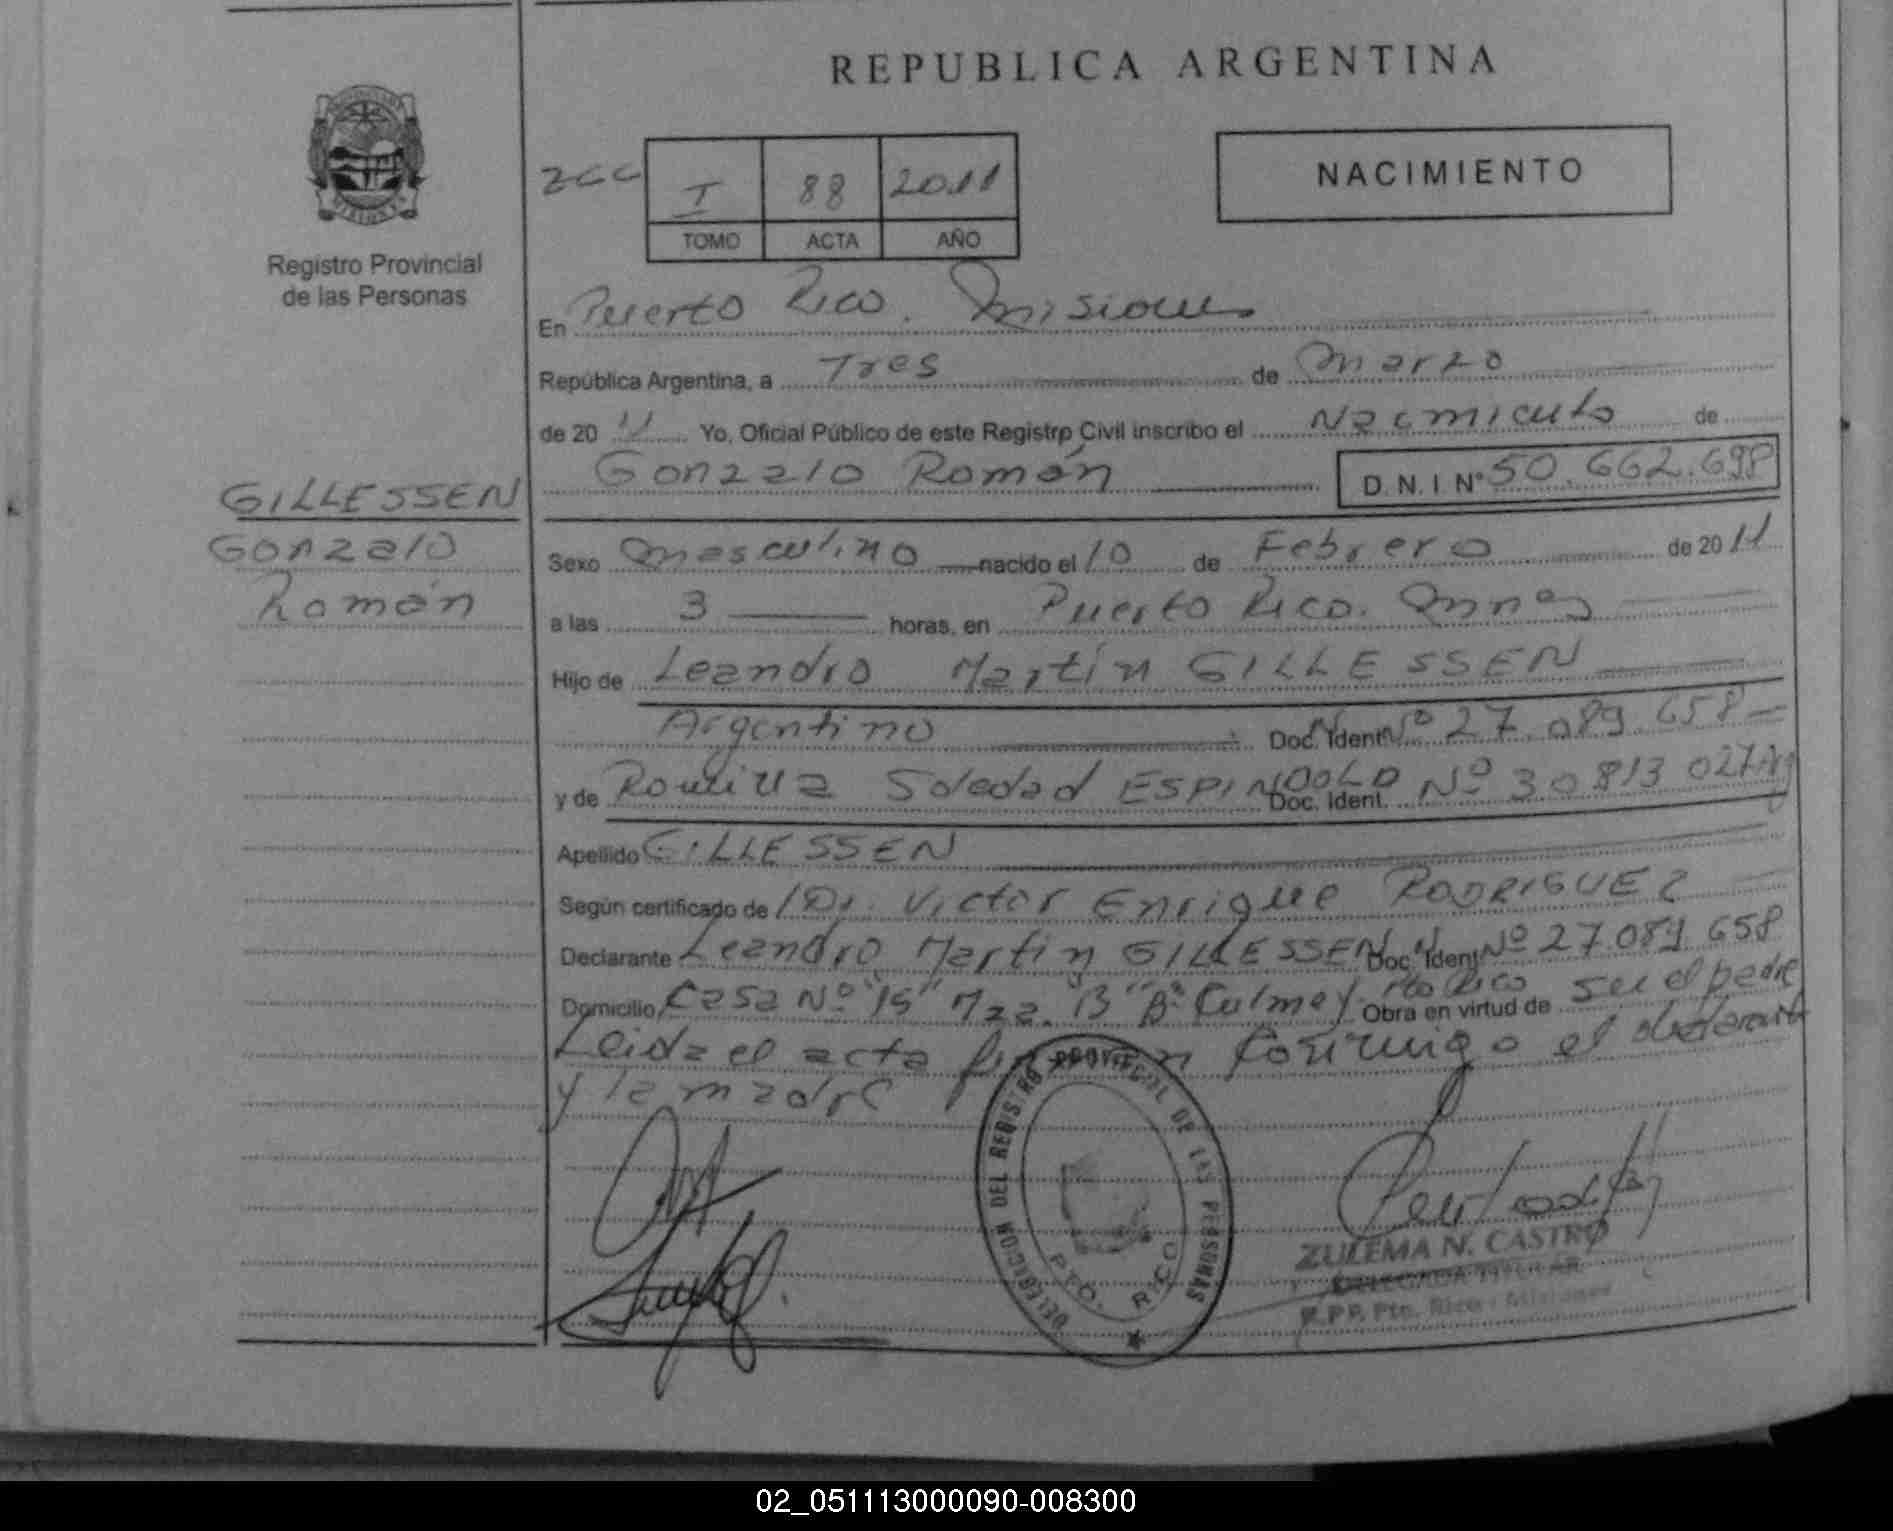 REPUBLICA ARGENTINA
MISIONES
Registro Provincial
de las Personas
ZCC
I 88 2011
TOMO ACTA AÑO
NACIMIENTO
En Puerto Rico. Misiones
República Argentina, a Tres de Marzo
de 20 11 Yo, Oficial Público de este Registro Civil inscribo el Nacimiento de
Gonzalo Román D.N.I Nº 50.662.698
GILLESSEN
Gonzalo
Román
Sexo masculino nacido el 10 de Febrero de 20 11
a las 3 horas, en Puerto Rico. Mnes
Hijo de Leandro Martín GILLESSEN
Argentino Doc. Ident. Nº 27.089.658
y de Romina Soledad ESPINDOLA Doc. Ident. Nº 30 813 027 Arg
Apellido GILLESSEN
Según certificado de Dr. Victor Enrique RODRIGUEZ
Declarante Leandro Martin GILLESSEN Doc. Ident Nº 27.089 658
Domicilio Casa Nº "15" Mza. 13 "Bº Culmey. Pto Rico Obra en virtud de ser el padre
Leida el acta firman conmigo el declarante
y la madre
DELEGACION DEL REGISTRO PROVINCIAL DE LAS PERSONAS
PTO. RICO
ZULEMA N. CASTRO
DELEGADA TITULAR
R.P.P. Pto. Rico - Misiones
02_051113000090-008300